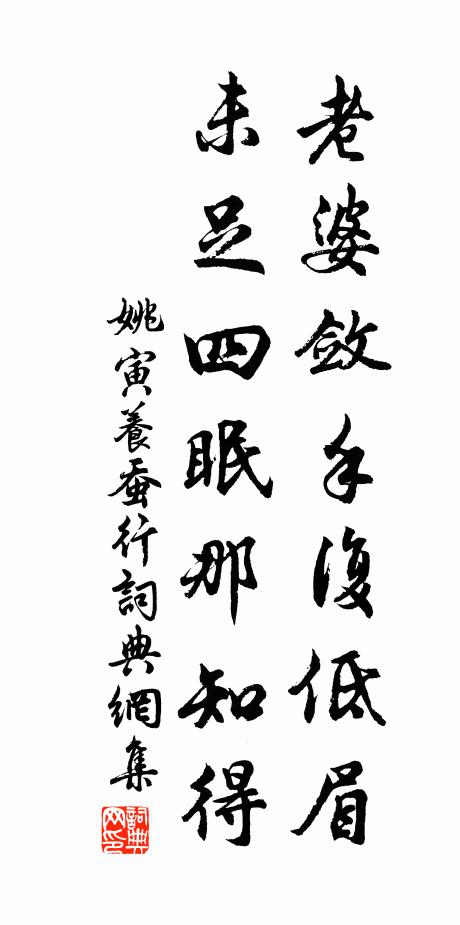 老婆斂手復低眉
未足四眠那知得
姚寅養蚕行詞典網集
詞典
网印